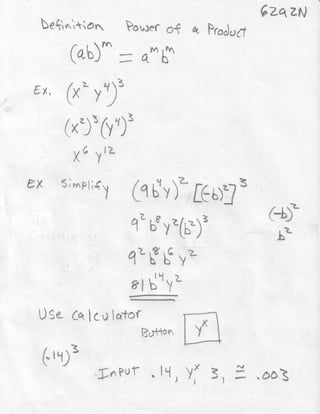 6ZAZN
Definition Power of a Product
(ab)^m = a^m b^m
Ex. (x^2 y^4)^3
(x^2)^3 (y^4)^3
x^6 y^12
EX Simplify (9b^4y)^2 [(-b)^2]^3
9^2 b^8 y^2 (b^2)^3
(-b)^2
b^2
9^2 b^8 b^6 y^2
81 b^14 y^2
Use calculator
Button y^x
(.14)^3
Input .14, y^x 3, ≅ .003